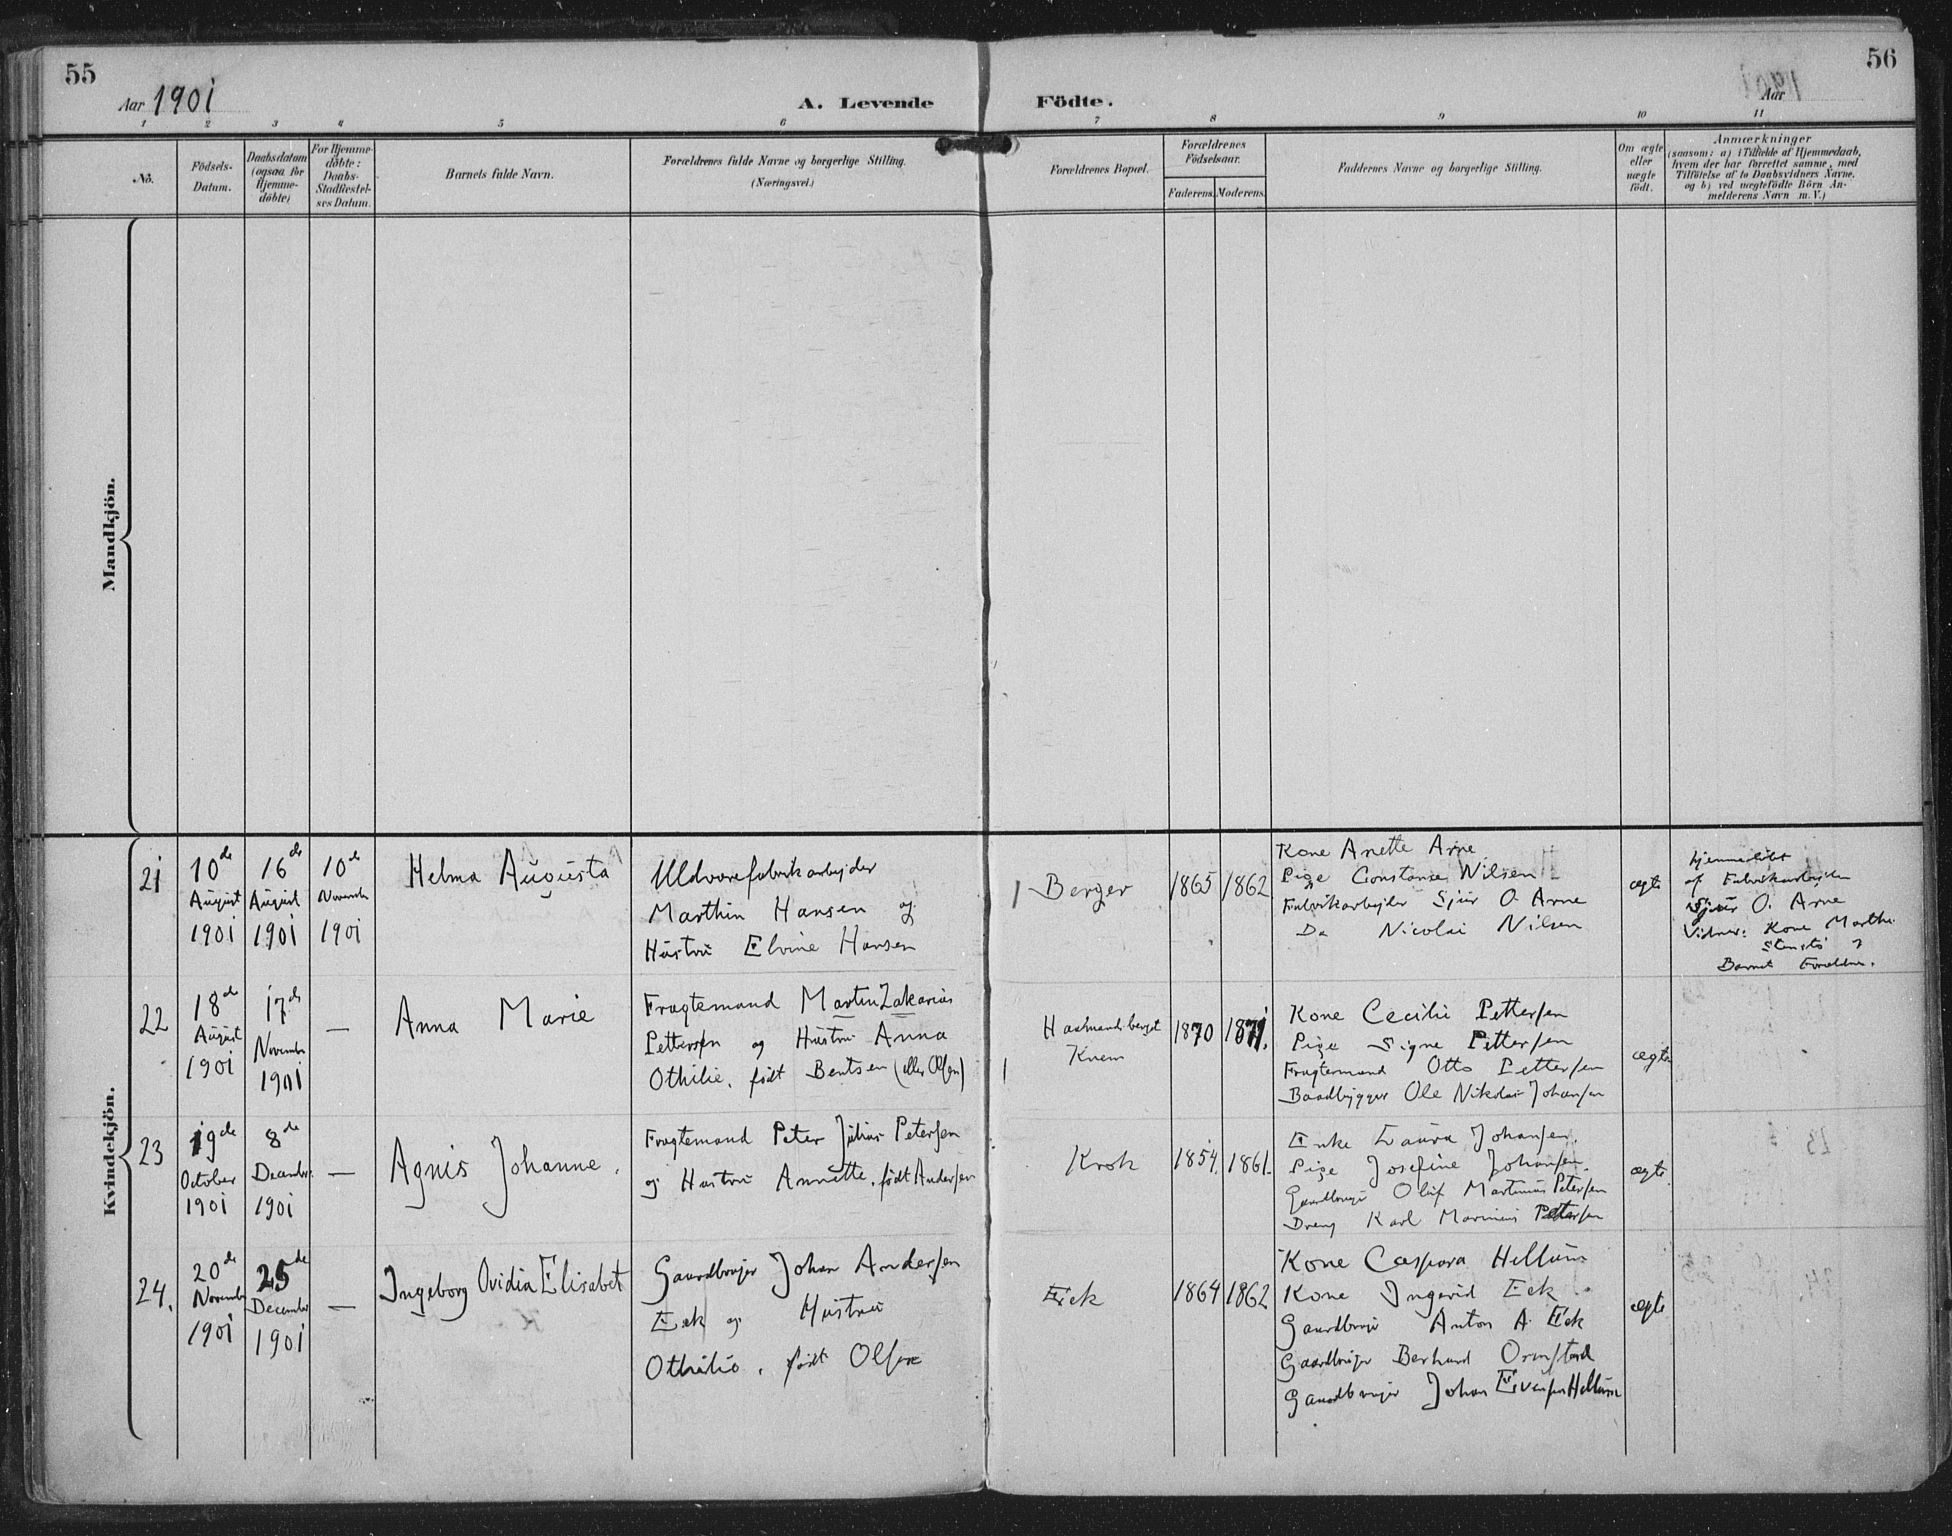 55
56
Aar 1901
A. Levende Födte.
Aar 1901
1 2 3 4 5 6 7 8 9 10 11
No.
Födsels-
Datum.
Daabsdatum
(ogsaa for
Hjemme-
döbte)
For Hjemme-
döbte:
Daabs-
Stadfæstel-
ses Datum.
Barnets fulde Navn.
Forældrenes fulde Navne og borgerlige Stilling.
(Næringsvei.)
Forældrenes Bopæl.
Forældrenes
Födselsaar.
Faderens. Moderens.
Faddernes Navne og borgerlige Stilling.
Om ægte
eller
uægte
født.
Anmærkninger
(saasom: a) i Tilfælde af Hjemmedaab,
hvem der har forrettet samme, med
Tilföielse af to Daabsvidners Navne,
og b) ved uægtefödte Börn An-
melderens Navn m. V.)
Mandkjön.
Kvindekjön.
21
10de
August
1901
16de
August
1901
10de
November
1901
Helma Augusta
Uldvarefabrikarbejder
Marthin Hansen og
Hustru Elvine Hansen
Berger
1865 1862
Kone Anette Arne
Pige Constanse Nilsen
Fabrikarbejder Sjur O. Arne
Do Nicolai Nilsen
ægte
hjemmedøbt
af Fabrikarbejder
Sjur O. Arne
Vidner: Kone Marthe
og
Barnets Forældre.
22
18de
August
1901
17de
November
1901
—
Anna Marie
Fragtemand Martin Zakarias
Pettersen og Hustru Anna
Othilie, født Bentsen (eller Olsen)
Knem
1870 1871.
Kone Cecilie Pettersen
Pige Signe Pettersen
Fragtemand Otto Pettersen
Baadbygger Ole Nikolai Johansen
ægte
23
19de
October
1901
8de
December
1901
—
Agnis Johanne.
Fragtemand Peter Julius Petersen
og Hustru Annette, født Andersen
Krok
1854. 1861.
Enke Laura Johansen.
Pige Josefine Johansen.
Gaardbruger Oluf Martinius Petersen
Dreng Karl Marinius Pettersen
ægte
24.
20de
November
1901
25de
December
1901
—
Ingeborg Ovidia Elisabet
Gaardbruger Johan Andersen
Eek og Hustru
Othilie, født Olsen
Eek
1864 1862
Kone Caspara Hellum
Kone Ingerid Eek
Gaardbruger Anton A. Eek
Gaardbruger Berhard Ormstad
Gaardbruger Johan Evensen Hellum
ægte